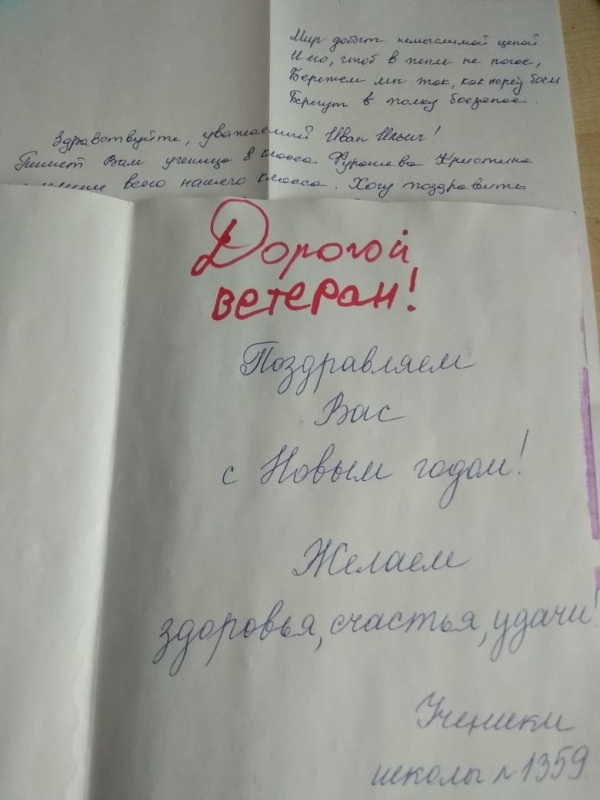 Мир добыт немыслимой ценой
И его, чтоб в пепле не погас,
Бережем мы так, как перед боем
Берегут в полку боезапас.
Здравствуйте, уважаемый Иван Ильич!
Пишет Вам ученица 8 класса Фурашева Кристина
всего нашего класса. Хочу поздравить
Дорогой
ветеран!
Поздравляем
Вас
с Новым годом!
Желаем
здоровья, счастья, удачи!
Ученики
школы №1359